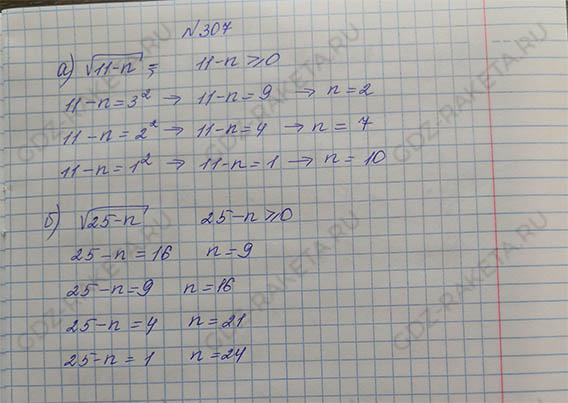 №307
а) √11-n =; 11-n ≥0
11-n=3² → 11-n=9 → n=2
11-n=2² → 11-n=4 → n=7
11-n=1² → 11-n=1 → n=10
б) √25-n 25-n≥0
25-n=16 n=9
25-n=9 n=16
25-n=4 n=21
25-n=1 n=24
GDZ-RAKETA.RU
GDZ-RAKETA.RU
GDZ-RAKETA.RU
GDZ-RAKETA.RU
GDZ-RAKETA.RU
GDZ-RAKETA.RU